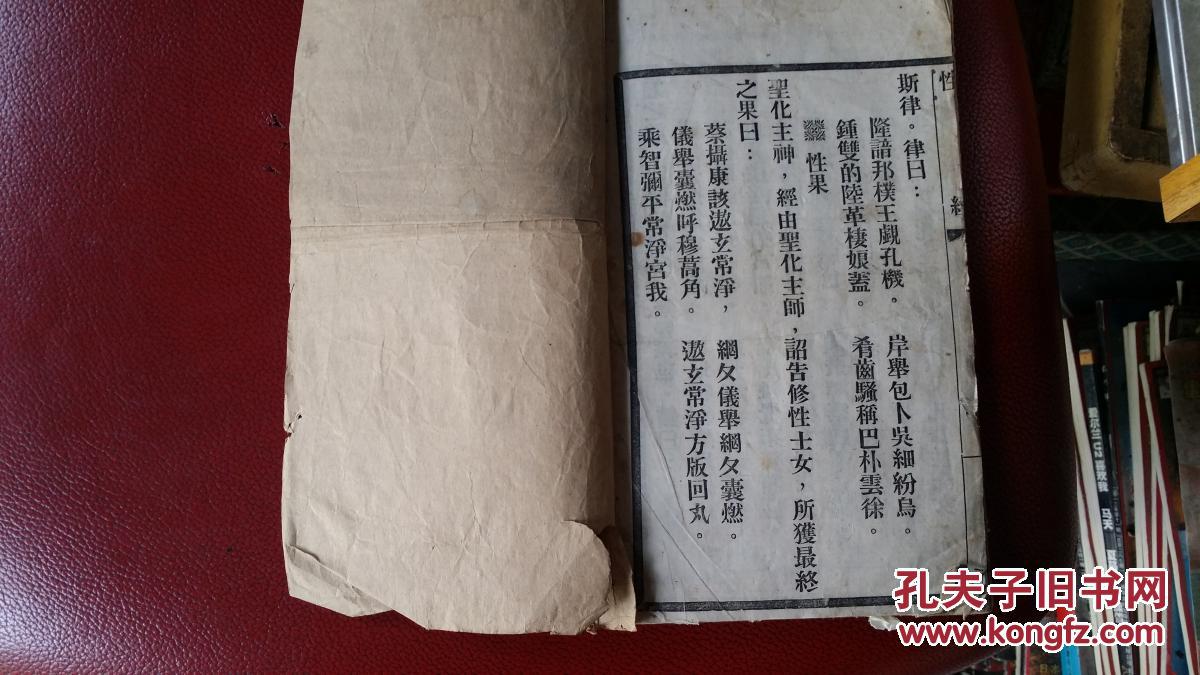 性
經
斯律。律曰：
隆諳邦樸王覰孔機。　岸舉包卜吳細紛鳥。
鍾雙的陸革棲娘蓋。　肴齒騷稱巴朴雲徐。
性果
聖化主神，經由聖化主師，詔告修性士女，所獲最終
之果曰：
蔡攝康該遨玄常淨，　綱夂儀舉綱夂囊燃。
儀舉囊燃呼穆蒿角。　遨玄常淨方版回丸。
乘智彌平常淨宮我。
马天
孔夫子旧书网
www.kongfz.com